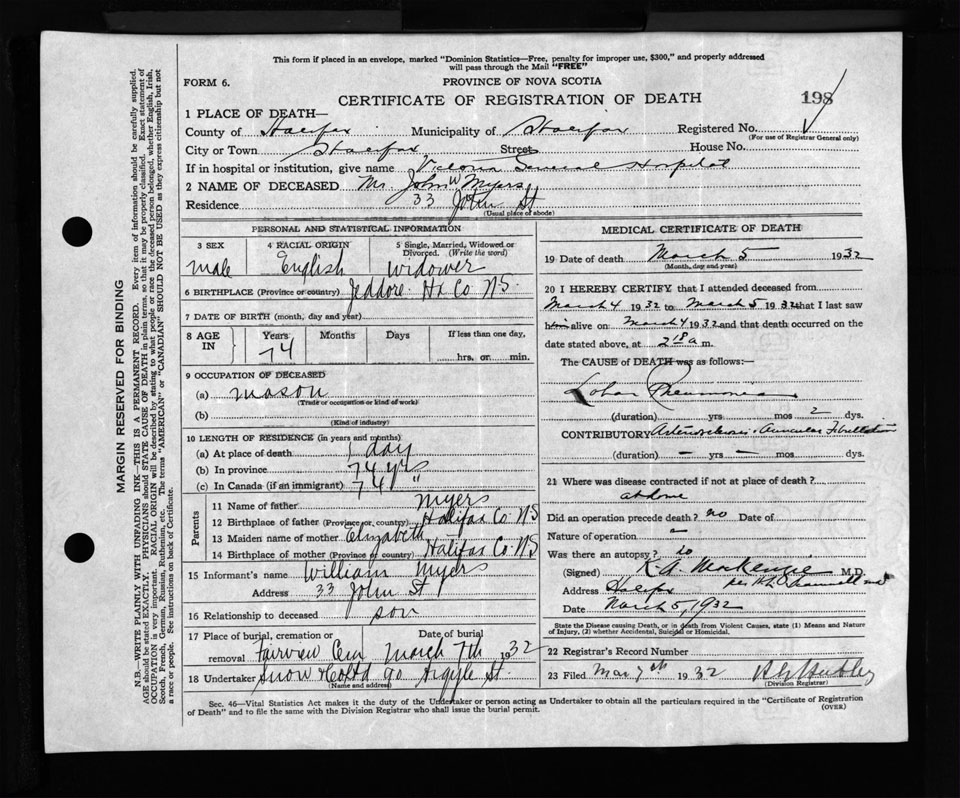 This form if placed in an envelope, marked "Dominion Statistics—Free, penalty for improper use, $300," and properly addressed
will pass through the Mail "FREE"
FORM 6.
PROVINCE OF NOVA SCOTIA
CERTIFICATE OF REGISTRATION OF DEATH
198
MARGIN RESERVED FOR BINDING
N.B.—WRITE PLAINLY WITH UNFADING INK—THIS IS A PERMANENT RECORD. Every item of information should be carefully supplied.
AGE should be stated EXACTLY. PHYSICIANS should STATE CAUSE OF DEATH in plain terms, so that it may be properly classified. Exact statement of
OCCUPATION is very important. RACIAL ORIGIN will be described by stating to what people or race the deceased person belonged, whether English, Irish,
Scotch, French, German, Russian, Ruthenian, etc. The terms "AMERICAN" or "CANADIAN" SHOULD NOT BE USED as they express citizenship but not
a race or people. See instructions on back of Certificate.
1 PLACE OF DEATH—
County of Halifax Municipality of Halifax Registered No.
(For use of Registrar General only)
City or Town Halifax Street House No.
If in hospital or institution, give name Victoria General Hospital
2 NAME OF DECEASED Mr. John W Myers
Residence 33 John St
(Usual place of abode)
PERSONAL AND STATISTICAL INFORMATION
3 SEX 4 RACIAL ORIGIN 5 Single, Married, Widowed or Divorced. (Write the word)
male English widower
6 BIRTHPLACE (Province or country) Jeddore Hx Co N.S.
7 DATE OF BIRTH (month, day and year)
8 AGE IN Years Months Days If less than one day,
74 hrs. or min.
9 OCCUPATION OF DECEASED
(a) mason
(Trade or occupation or kind of work)
(b)
(Kind of industry)
10 LENGTH OF RESIDENCE (in years and months)
(a) At place of death 1 day
(b) In province 74 yrs
(c) In Canada (if an immigrant) 74 "
Parents
11 Name of father Myers
12 Birthplace of father (Province or country) Halifax Co N.S
13 Maiden name of mother Elizabeth
14 Birthplace of mother (Province or country) Halifax Co. N.S
15 Informant's name William Myers
Address 33 John St
16 Relationship to deceased son
17 Place of burial, cremation or removal Date of burial
Fairview Cem March 7th 1932
18 Undertaker Snow & Co Ltd 90 Argyle St.
(Name and address)
MEDICAL CERTIFICATE OF DEATH
19 Date of death March 5 1932
(Month, day and year)
20 I HEREBY CERTIFY that I attended deceased from
March 4 1932 to March 5 1932 that I last saw
him alive on March 4 1932 and that death occurred on the
date stated above, at 2 a m.
The CAUSE of DEATH was as follows:—
Lobar Pneumonia
(duration) yrs mos 2 dys.
CONTRIBUTORY Arteriosclerosis - Auricular Fibrillation
(duration) — yrs — mos dys.
21 Where was disease contracted if not at place of death?
at home
Did an operation precede death? no Date of
Nature of operation —
Was there an autopsy?
(Signed) K. A. MacKenzie M.D.
Address Halifax per
Date March 5, 1932
State the Disease causing Death, or in death from Violent Causes, state (1) Means and Nature
of Injury, (2) whether Accidental, Suicidal or Homicidal.
22 Registrar's Record Number
23 Filed Mar 7th 1932
(Division Registrar)
Sec. 46—Vital Statistics Act makes it the duty of the Undertaker or person acting as Undertaker to obtain all the particulars required in the "Certificate of Registration
of Death" and to file the same with the Division Registrar who shall issue the burial permit.
(OVER)